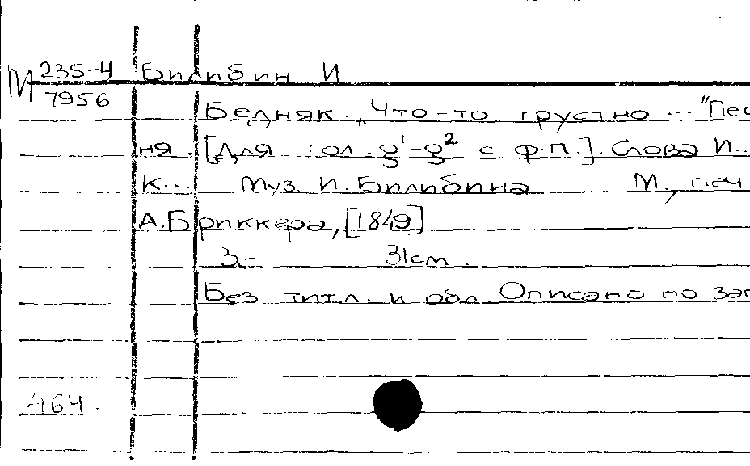 М 235-4 Билибин И
7956
Бедняк „Что-то грустно ..." Пес
ня. [Для гол. g¹-g² с ф.п.]. Слова И..
К... Муз. И. Билибина М., печ
А. Бриккера, [1849]
3 31см.
Без титл. и обл. Описано по заг
464.